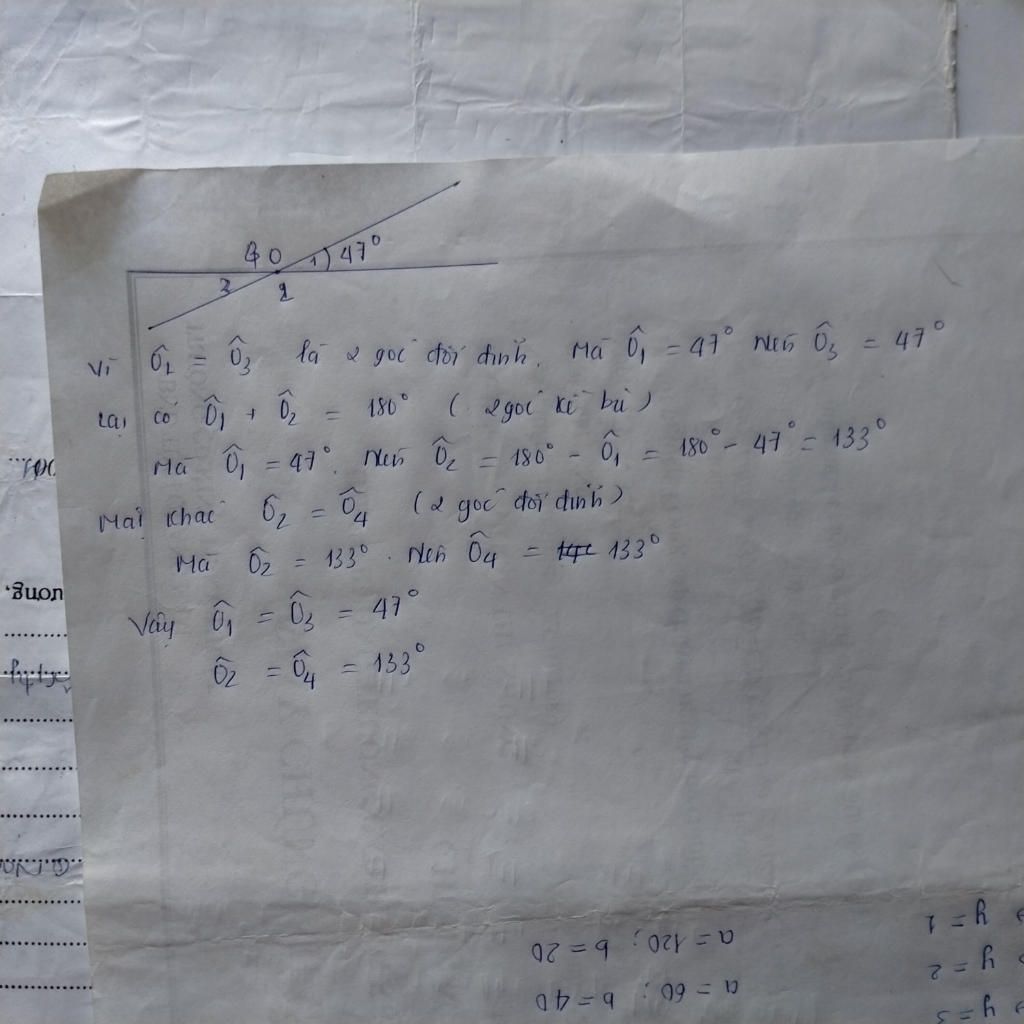 4 O 1 47°
3 2
Vì Ô1 = Ô3 là 2 góc đối đỉnh. Mà Ô1 = 47° Nên Ô3 = 47°
Lại có Ô1 + Ô2 = 180° ( 2 góc kề bù )
Mà Ô1 = 47°. Nên Ô2 = 180° - Ô1 = 180° - 47° = 133°
Mặt khác Ô2 = Ô4 ( 2 góc đối đỉnh )
Mà Ô2 = 133°. Nên Ô4 = 133°
Vậy Ô1 = Ô3 = 47°
Ô2 = Ô4 = 133°
y = 1
a = 120 ; b = 20
y = 2
a = 60 ; b = 40
y = 3